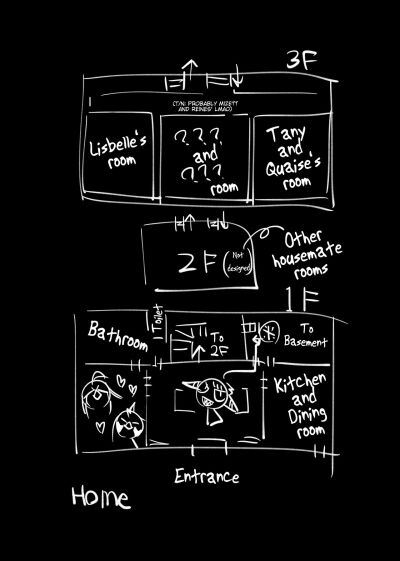 3F
(T/N: PROBABLY MIZETT
AND REINES' LMAO)
Lisbelle's
room
???
and
???
room
Tany
and
Quaise's
room
2F
(Not
designed)
Other
housemate
rooms
1F
Bathroom
Toilet
To
2F
To
Basement
Kitchen
and
Dining
room
Entrance
Home